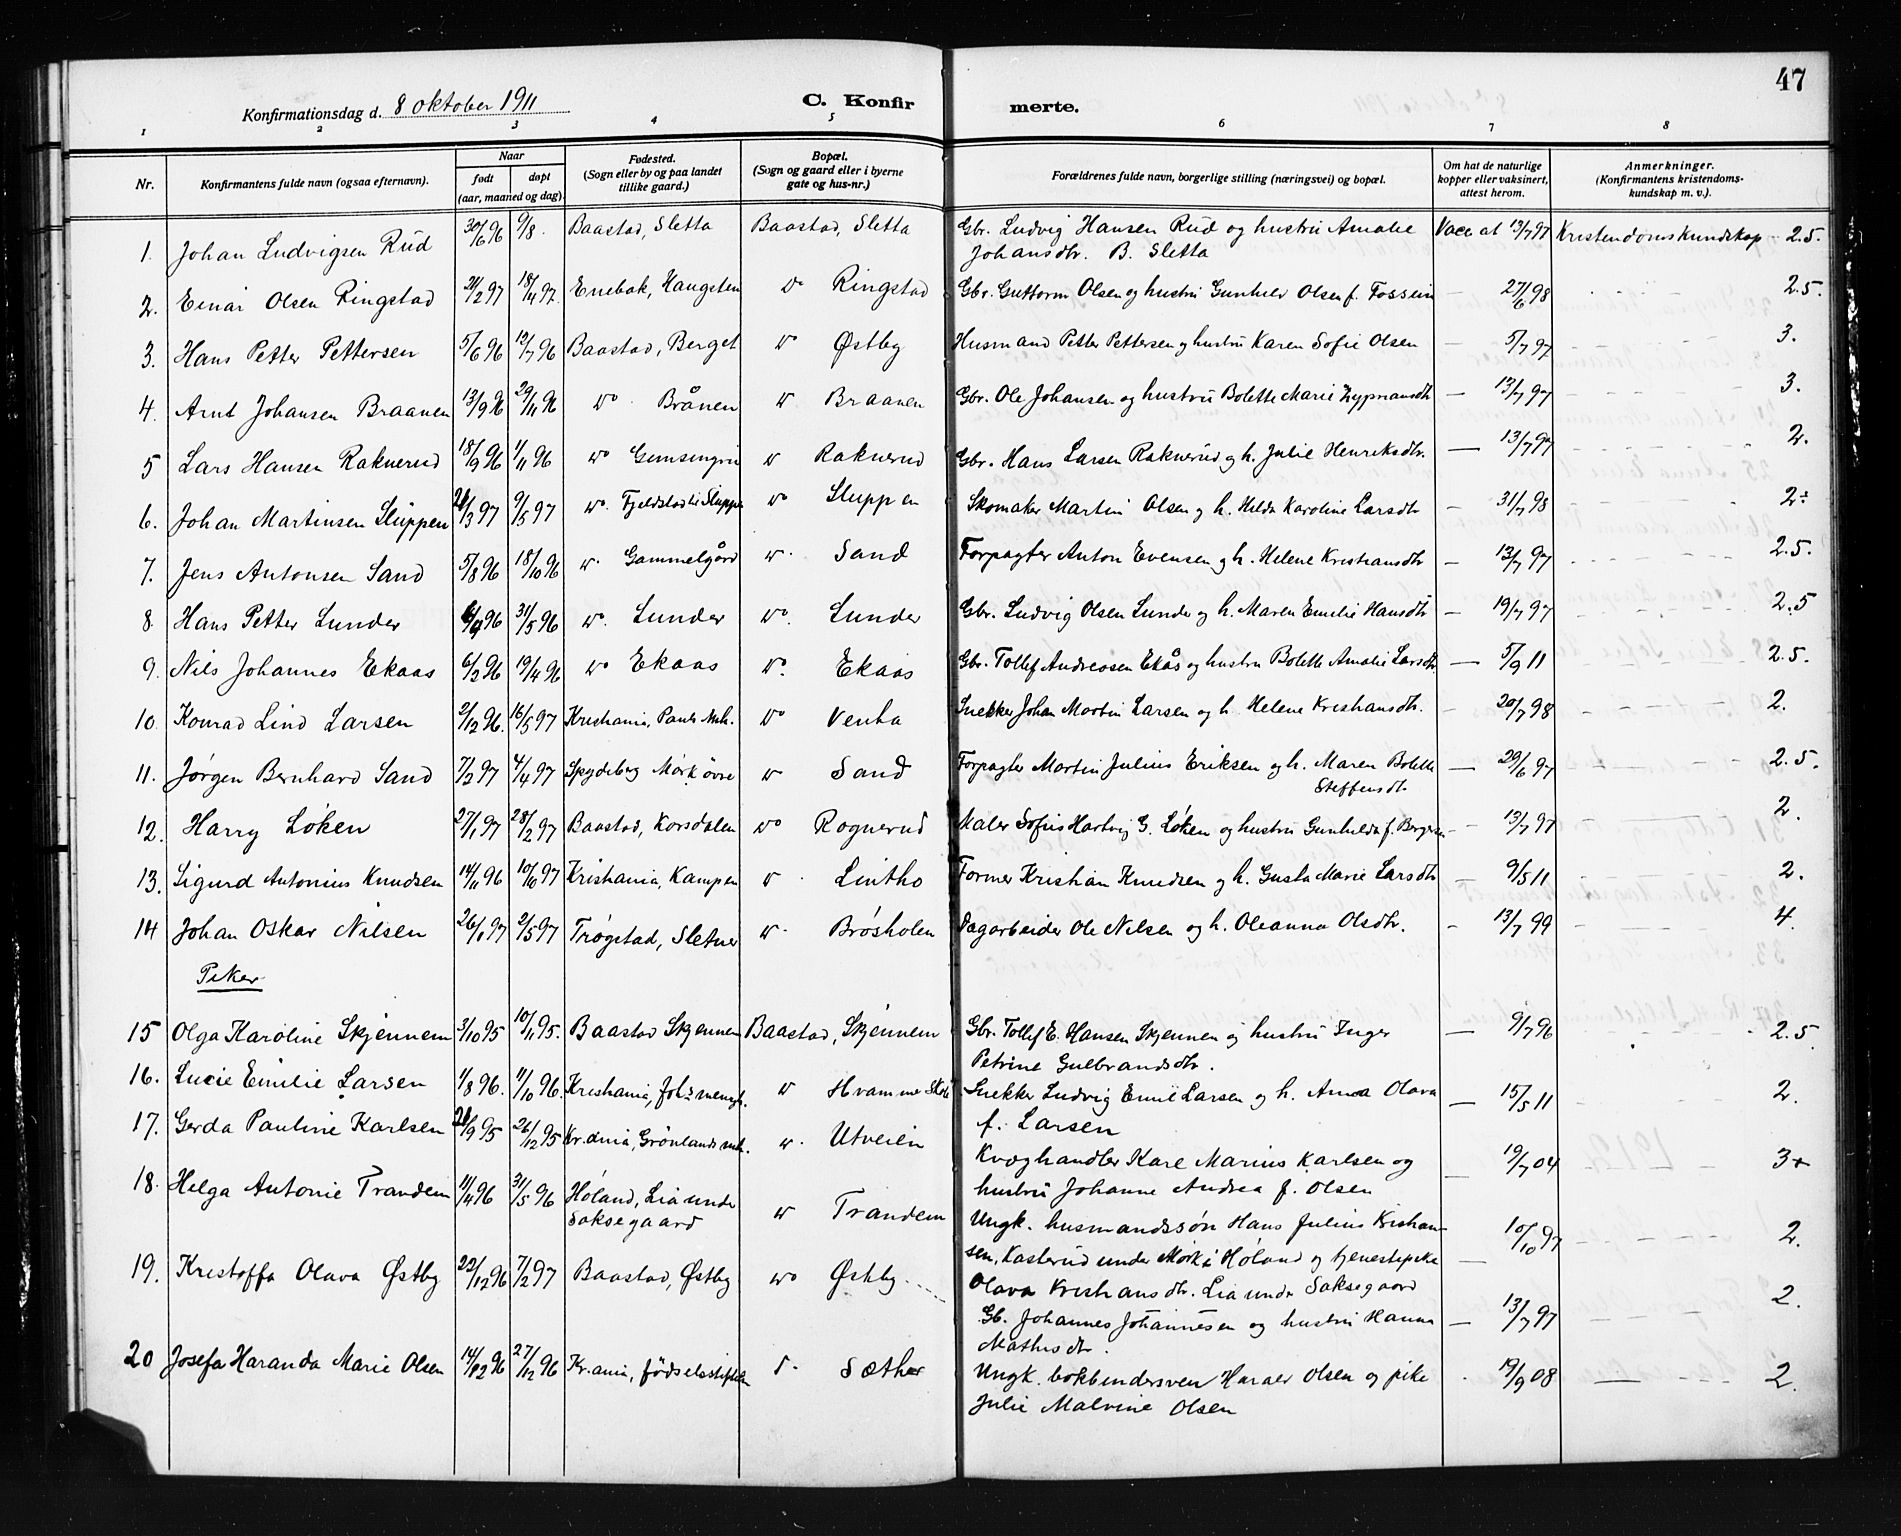 47
Konfirmationsdag d. 8 oktober 1911 C. Konfirmerte.
1 2 3 4 5 6 7 8
Nr. Konfirmantens fulde navn (ogsaa efternavn). Naar født døpt (aar, maaned og dag) Fødested. (Sogn eller by og paa landet tillike gaard.) Bopæl. (Sogn og gaard eller i byerne gate og hus-nr.) Forældrenes fulde navn, borgerlige stilling (næringsvei) og bopæl. Om hat de naturlige kopper eller vaksinert, attest herom. Anmerkninger. (Konfirmantens kristendomskundskap m. v.)
1. Johan Ludvigsen Rud 30/6 96 9/8. Baastad, Sletta Baastad, Sletta Gbr. Ludvig Hansen Rud og hustru Amalie Vacc at 13/7 97 Kristendomskundskap - 2.5.
Johansdtr. B. Sletta
2. Einar Olsen Ringstad 21/2 97 18/4 97. Enebak, Haugsten do Ringstad Gbr. Guttorm Olsen og hustru Gunhild Olsen f. Fossein — 27/6 98 2.5.
3. Hans Petter Pettersen 5/6 96 12/7 96 Baastad, Berget do Østby Husmand Petter Pettersen og hustru Karen Sofie Olsen — 5/7 97 3.
4. Arnt Johansen Braanen 13/9 96 29/11 96 do Brånen do Braanen Gbr. Ole Johansen og hustru Bolette Marie Zypriansdtr — 13/7 97 3.
5 Lars Hansen Raknerud 18/9 96 1/11 96 do Gimsingrud do Raknerud Gbr. Hans Larsen Raknerud og h. Julie Henriksdtr. — 13/7 97 2.
6. Johan Martinsen Sluppen 21/3 97 9/5 97 do. Fjeldstad lie Sluppen do Sluppen Skomaker Martin Olsen og h. Hilda Karoline Larsdtr — 31/7 98 2÷
7. Jens Antonsen Sand 5/8 96 18/10 96 do. Gammelgård do. Sand Forpagter Anton Evensen og h. Helene Kristiansdtr — 13/7 97 2.5.
8. Hans Petter Lunder 96 31/5 96 do. Lunder do. Lunder Gbr. Ludvig Olsen Lunder og h. Maren Emilie Hansdtr — 19/7 97 2.5
9. Nils Johannes Ekaas 6/2 96 19/4 96 do Ekaas do. Ekaas Gbr. Tollef Andreassen Ekås og hustru Bolette Amalie Larsdtr. — 5/9 11 2.5.
10. Konrad Lind Larsen 2/12 96. 16/5 97 Kristiania, Pauls Mnh. do Venka Snekker Johan Martin Larsen og h. Helene Kristiansdtr. — 20/7 98 2.
11. Jørgen Bernhard Sand 7/2 97 4/4 97 Spydeberg Mørk øvre do Sand Forpagter Martin Julius Eriksen og h. Maren Bolette — 29/6 97 2.5.
Steffensdtr.
12. Harry Løken 27/1 97 28/2 97 Baastad, Korsdalen do Rognerud Maler Sofus Hartvig G. Løken og hustru Gunhilda f. Bergersen — 13/7 97 2.
13. Sigurd Antonius Knudsen 14/11 96 10/10 97 Kristiania, Kampen do Lintho Former Kristian Knudsen og h. Gusta Marie Larsdtr — 9/5 11 2.
14 Johan Oskar Nilsen 26/1 97 2/5 97 Trøgstad, Sletner do. Brøsholen Dagarbeider Ole Nilsen og h. Oleanna Olsdtr. — 13/7 99 4.
Piker
15 Olga Karoline Skjennem 3/10 95 10/11 95. Baastad Skjennem Baastad, Skjennem Gbr. Tollef E. Hansen Skjennen og hustru Inger — 9/7 96 2.5
Petrine Gulbrandsdtr.
16. Lucie Emilie Larsen 1/8 96. 11/10 96. Kristiania, Johs menigh. do Hvamme Skole Snekker Ludvig Emil Larsen og h. Anna Olava — 15/5 11 2.
f. Larsen
17. Gerda Pauline Karlsen 21/9 95 26/12 95 Kr.ania, Grönlands mnh. do. Utveien Kvæghandler Kare Marius Karlsen og — 19/7 04 3+
hustru Johanne Andrea f. Olsen
18. Helga Antonie Trandem 11/4 96 31/5 96 Høland, Lia under Saksegaard do Trandem Ungk. husmandssøn Hans Julius Kristiansen, Kasterud under Mørk i Høland og tjenestepike — 10/10 97 2.
Olava Kristiansdtr. Lia under Saksegaard
19. Kristoffa Olava Østby 22/12 96 7/2 97 Baastad, Østby do Østby Gb. Johannes Johannesen og hustru Hanna — 13/7 97 2.
Mathisdtr.
20 Josefa Haranda Marie Olsen 14/12 96 27/12 96 Kr.ania, fødselsstiftelsen d. Sæther Ungk. bokbindersven Harald Olsen og pike 19/9 08 — 2.
Julie Malvine Olsen